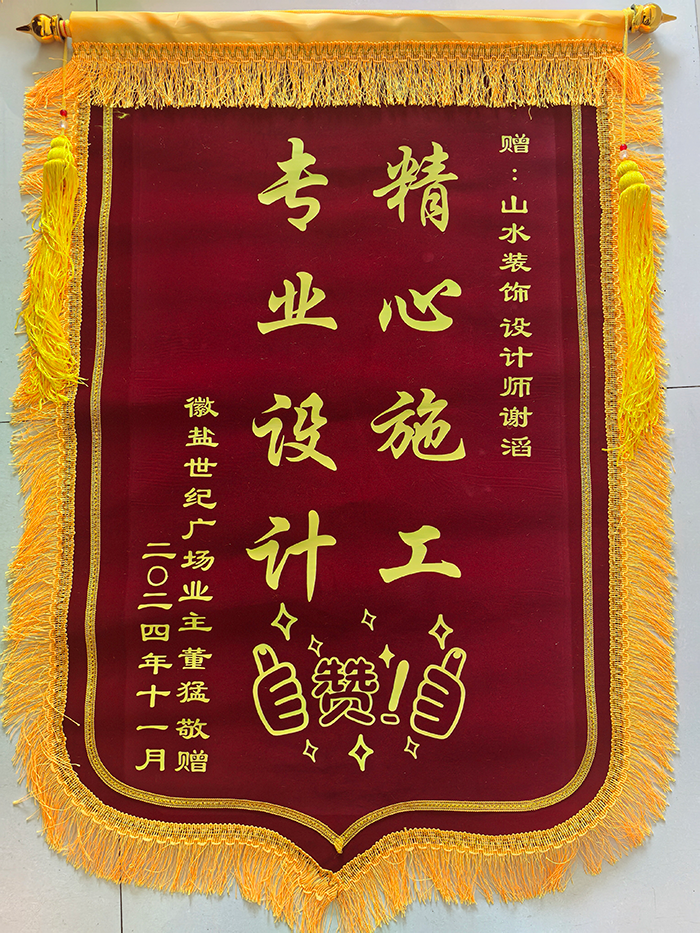 赠：山水装饰设计师谢滔
精心施工
专业设计
赞！
徽盐世纪广场业主董猛敬赠
二〇二四年十一月